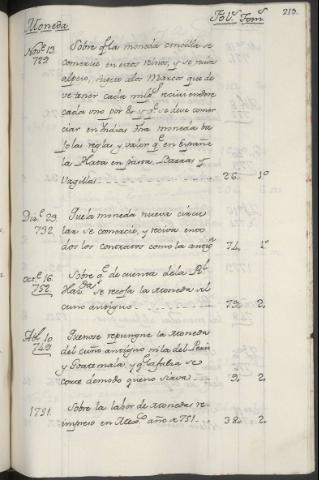 Moneda
Fol.s Tom.s
213.
Nov.e 13. Sobre q.e la moneda sencilla se
729. comercie en estos Reinos, y se reciva
al peso, sujeto a los Marcos que de
ve tener cada mil p.s recividendose
cada uno por 8 r.s y q.e se deve comer
ciar en Indias otra moneda ba
jo las reglas y valor q.e en España
la Plata en pasta Barras y
Vagillas 26. 1º
Dic.e 29. Que la moneda nueva circu
732. lar se comercie, y reciva en to
dos los contratos como la antig.a 74. 1.º
Oct.e 16. Sobre q.e de cuenta de la R.l
752. Haz.da se recoja la Moneda del
cuño antiguo 79. 2.
Ab.l 10. Que no se repugne la Moneda
749. del cuno antiguo ni la del Perú
y Goatemala y q.e la falsa se
corte de modo que no sirva 9. 2.
1751. Sobre la labor de Monedas re
impreso en Mex.co año de 751. 38. 2.